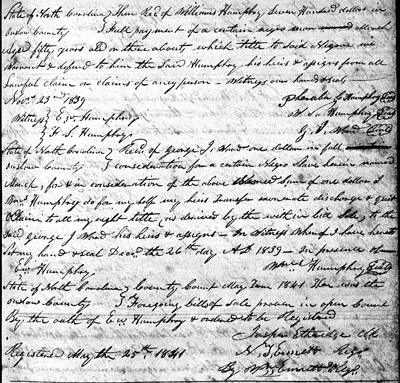 State of North Carolina } Then Recd of Williams Humphry Seven Hundred dollars in
onslow County } full payment of a certain negro man
Aged fifty years old or there about which title to said Negroe we
warrant & defend to him the Said Humphry his heirs & assigns from all
lawful claim or claims of any person - Witness our hand & seal
Novr 23rd 1839
Witness } E. W. Humphry Humphry Seal
S. Humphry G. J. Ward Seal
State of North Carolina } Recd of george J. Ward one dollar in full
onslow County } consideration for a certain Negro Slave herein named
for & in consideration of the above Sum of one dollar I
Wms Humphry do for my self my heirs transfer discharge & quit
Claim to all my right title as derived by the with in bill Sale, to the
Said george J Ward his heirs & assigns - In witness Whereof I have hereto
Set my hand & seal Decr the 26th day AD 1839 - In presence of
Humphry Humphry Seal
State of North Carolina } County Court May Term 1841 Then was the
onslow County } Foregoing bill of sale proven in open Court
By the oath of Humphry & ordered to be Registered
Jasper Etheredge Clk
Registered May the 25th 1841
By